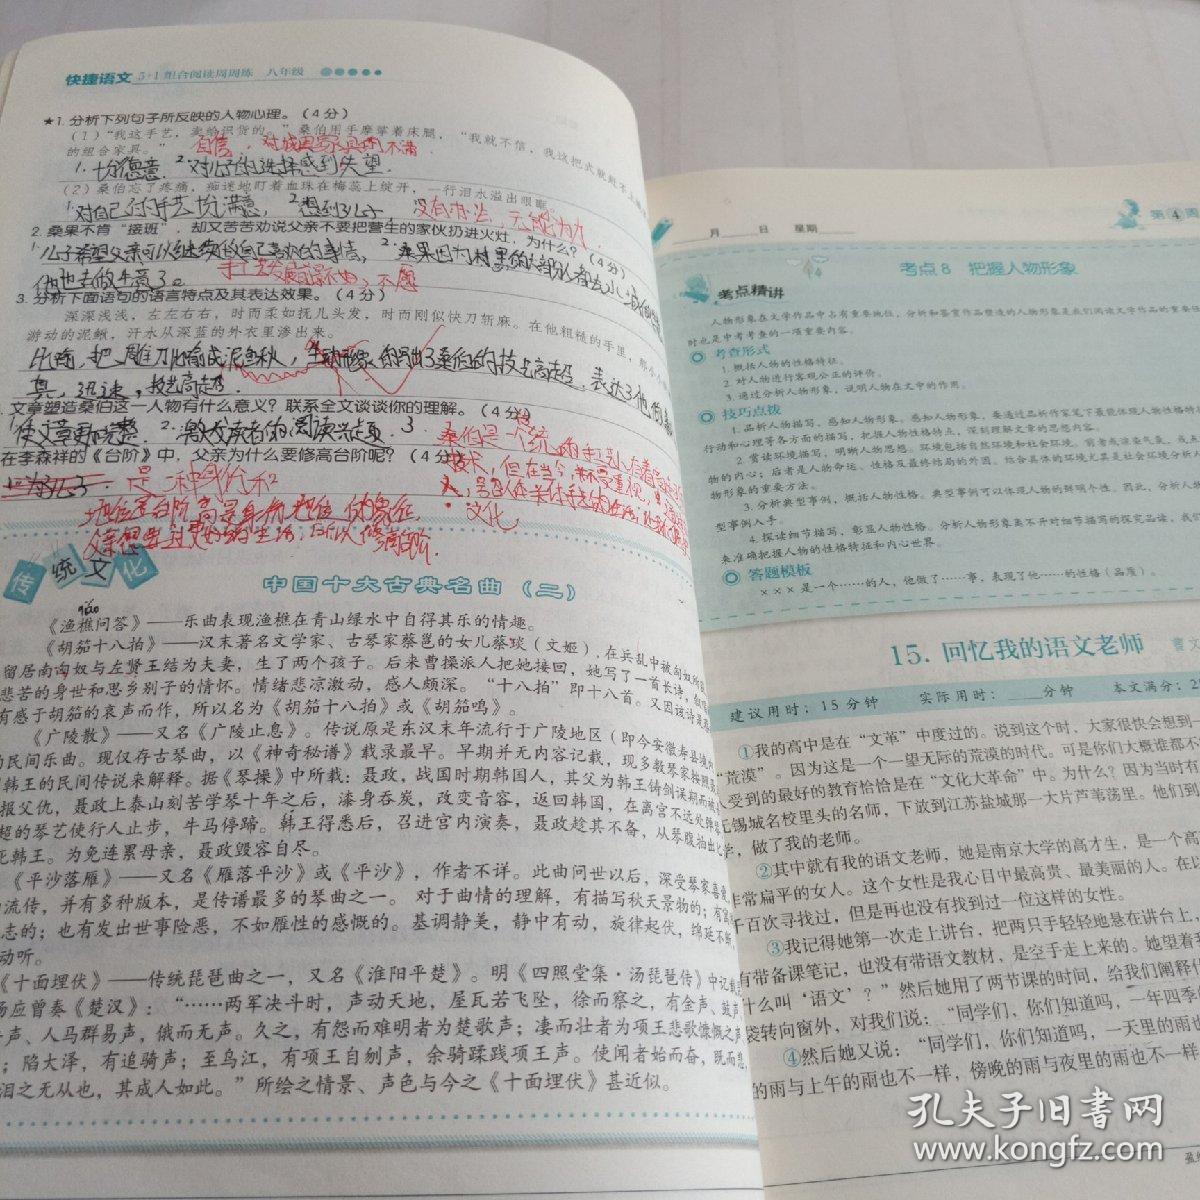 快捷语文 5+1组合阅读周周练 八年级
★1.分析下列句子所反映的人物心理。（4分）
（1）“我这手艺，卖给识货的。”桑伯用手摩挲着床腿，“我就不信，我这把式就赶不上
的组合家具。”
自信，对
不满
1.
得意 2.对儿子的选择感到失望.
（2）桑伯忘了疼痛，痴迷地盯着血珠在梅蕊上绽开，一行泪水溢出眼眶。
1.对自己的手艺
满意， 2.想到儿子
没有办法，无能为力.
2.桑果不肯“接班”，却又苦苦劝说父亲不要把营生的家伙扔进火灶，为什么？（4分）
1.儿子希望父亲可以继续做自己喜欢的事情， 2.桑果因为村里的大部分人都去
他也去做生意了。
手工发展前景
不愿
3.分析下面语句的语言特点及其表达效果。（4分）
深深浅浅，左左右右，时而柔如抚儿头发，时而刚似快刀斩麻。在他粗糙的手里，那
游动的泥鳅，汗水从深蓝的外衣里渗出来。
比喻，把雕刀比喻成泥鳅，生动形象的写出了桑伯的技艺高超，表达了他
真，迅速，技艺高超.
文章塑造桑伯这一人物有什么意义？联系全文谈谈你的理解。（4分）
1.使文章更完整. 2.激发读者的阅读兴趣. 3.
桑伯是一个传统的手工
在李森祥的《台阶》中，父亲为什么要修高台阶呢？（4分）
技术，但在当今
是一种身份和
地位
台阶高是身份地位的象征
文化
传统文化
中国十大古典名曲（二）
qiáo
《渔樵问答》——乐曲表现渔樵在青山绿水中自得其乐的情趣。
《胡笳十八拍》——汉末著名文学家、古琴家蔡邕的女儿蔡琰（文姬），在兵乱中被匈奴所获
留居南匈奴与左贤王结为夫妻，生了两个孩子。后来曹操派人把她接回，她写了一首长诗，叙唱
悲苦的身世和思乡别子的情怀。情绪悲凉激动，感人颇深。“十八拍”即十八首。又因该诗是
有感于胡笳的哀声而作，所以名为《胡笳十八拍》或《胡笳鸣》。
《广陵散》——又名《广陵止息》。传说原是东汉末年流行于广陵地区（即今安徽寿县境内
的民间乐曲。现仅存古琴曲，以《神奇秘谱》载录最早。早期并无内容记载，现多数琴家按照
韩王的民间传说来解释。据《琴操》中所载：聂政，战国时期韩国人，其父为韩王铸剑误期而被
报父仇，聂政上泰山刻苦学琴十年之后，漆身吞炭，改变音容，返回韩国，在离宫不远处弹
超的琴艺使行人止步，牛马停蹄。韩王得悉后，召进宫内演奏，聂政趁其不备，从琴腹抽出
死韩王。为免连累母亲，聂政毁容自尽。
《平沙落雁》——又名《雁落平沙》或《平沙》，作者不详。此曲问世以后，深受琴家喜爱
流传，并有多种版本，是传谱最多的琴曲之一。对于曲情的理解，有描写秋天景物的；有
志的；也有发出世事险恶，不如雁性的感慨的。基调静美，静中有动，旋律起伏，绵延不断，
动听。
《十面埋伏》——传统琵琶曲之一，又名《淮阳平楚》。明《四照堂集·汤琵琶传》中记载
汤应曾奏《楚汉》：“……两军决斗时，声动天地，屋瓦若飞坠，徐而察之，有金声、鼓声
声、人马辟易声，俄而无声。久之，有怨而难明者为楚歌声；凄而壮者为项王悲歌慷慨之声
；陷大泽，有追骑声；至乌江，有项王自刎声，余骑蹂践项王声。使闻者始而奋，既而悲
泪之无从也，其感人如此。”所绘之情景、声色与今之《十面埋伏》甚近似。
月 日 星期
第4周
考点8 把握人物形象
考点精讲
人物形象在文学作品中占有重要地位，分析和鉴赏作品塑造的人物形象是我们阅读文学作品的重要
时也是中考考查的一项重要内容。
考查形式
1.概括人物的性格特征。
2.对人物进行客观公正的评价。
3.通过分析人物形象，说明人物在文中的作用。
技巧点拨
1.品析人物描写，感知人物形象。感知人物形象，要通过品析作家笔下最能体现人物性格特
行动和心理等各方面的描写，把握人物性格特点，深刻理解文章的思想内容。
2.赏读环境描写，明晰人物思想。环境包括自然环境和社会环境。前者或渲染气氛，或
物的内心；后者是人物命运、性格及最终结局的外因。结合具体的环境尤其是社会环境分析人
物形象的重要方法。
3.分析典型事例，概括人物性格。典型事例可以体现人物的鲜明个性。因此，分析人物
型事例入手。
4.探读细节描写，彰显人物性格。分析人物形象离不开对细节描写的探究品读，我
来准确把握人物的性格特征和内心世界。
答题模板
×××是一个……的人，他做了……事，表现了他……的性格（品质）。
15. 回忆我的语文老师
曹文
建议用时：15分钟 实际用时：____分钟 本文满分：2
①我的高中是在“文革”中度过的。说到这个时，大家很快会想到一
“荒漠”。因为这是一个一望无际的荒漠的时代。可是你们大概谁都不
受到的最好的教育恰恰是在“文化大革命”中。为什么？因为当时有
无锡城名校里头的名师，下放到江苏盐城那一大片芦苇荡里。他们到
学，做了我的老师。
②其中就有我的语文老师，她是南京大学的高才生，是一个高
非常扁平的女人。这个女性是我心目中最高贵、最美丽的人。在
千百次寻找过，但是再也没有找到过一位这样的女性。
③我记得她第一次走上讲台，把两只手轻轻地悬在讲台上，
有带备课笔记，也没有带语文教材，是空手走上来的。她望着我
什么叫‘语文’？”然后她用了两节课的时间，给我们阐释什
袋转向窗外，对我们说：“同学们，你们知道吗，一年四季的
④然后她又说：“同学们，你们知道吗，一天里的雨也
的雨与上午的雨也不一样，傍晚的雨与夜里的雨也不一样
孔夫子旧书网
www.kongfz.com